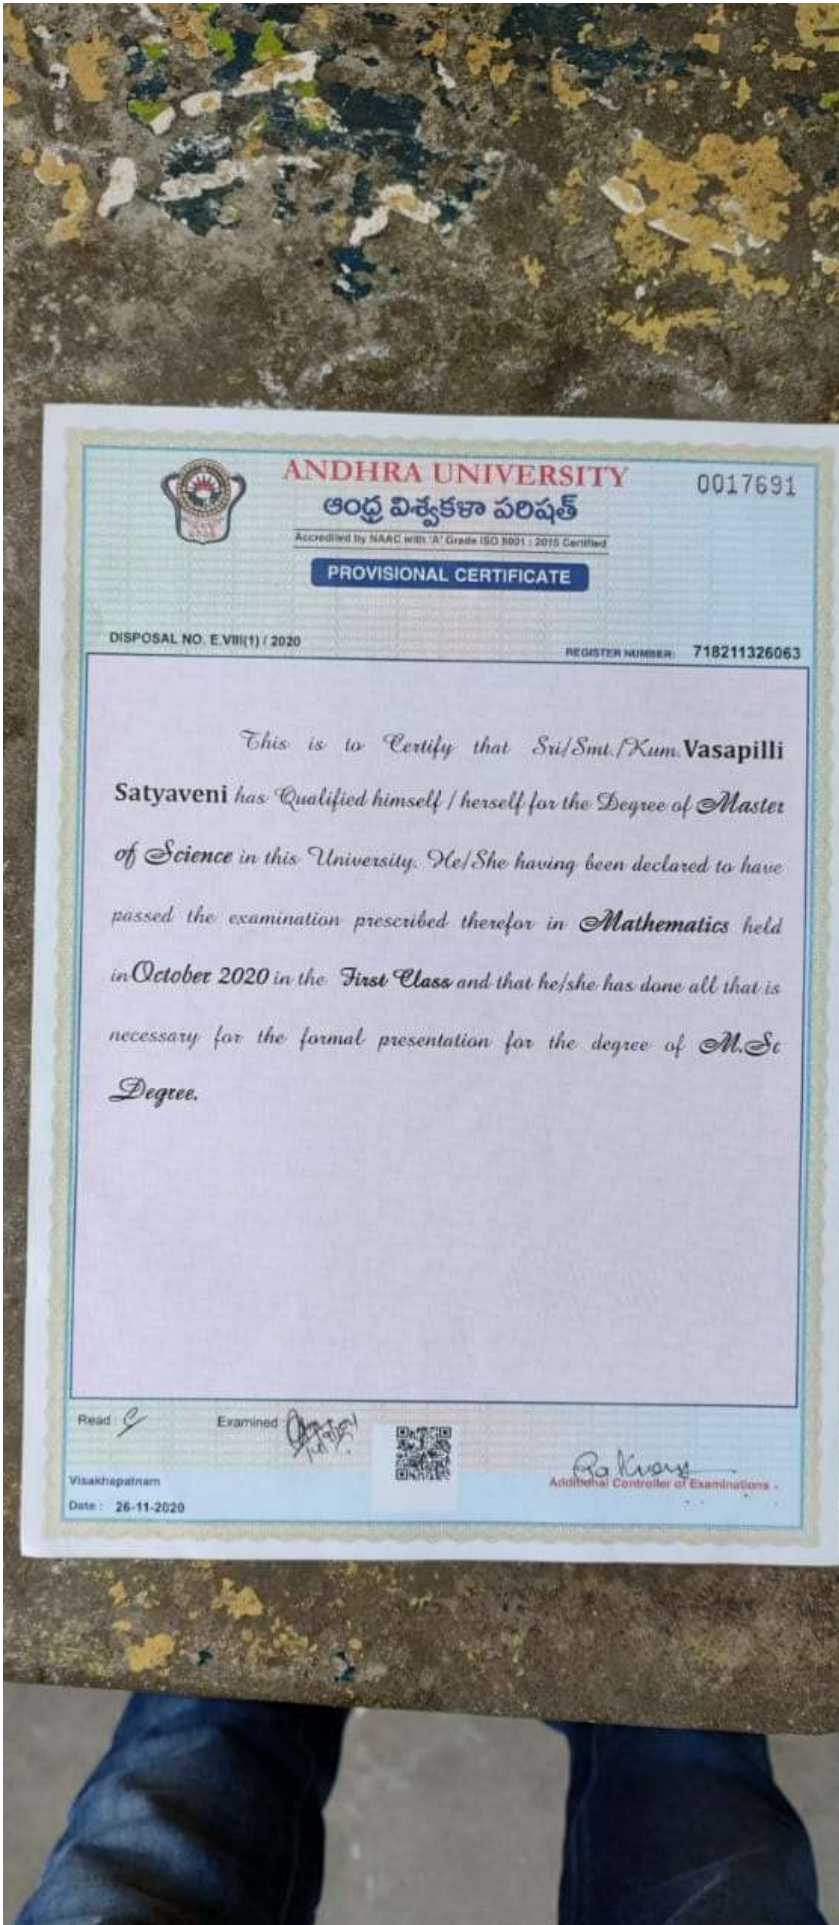 ANDHRA UNIVERSITY
0017691
ఆంధ్ర విశ్వకళా పరిషత్
Accredited by NAAC with 'A' Grade ISO 9001 : 2015 Certified
PROVISIONAL CERTIFICATE
DISPOSAL NO. E.VIII(1) / 2020
REGISTER NUMBER: 718211326063
This is to Certify that Sri/Smt./Kum. Vasapilli
Satyaveni has Qualified himself / herself for the Degree of Master
of Science in this University. He/She having been declared to have
passed the examination prescribed therefor in Mathematics held
in October 2020 in the First Class and that he/she has done all that is
necessary for the formal presentation for the degree of M.Sc
Degree.
Read
Examined
Additional Controller of Examinations
Visakhapatnam
Date : 26-11-2020